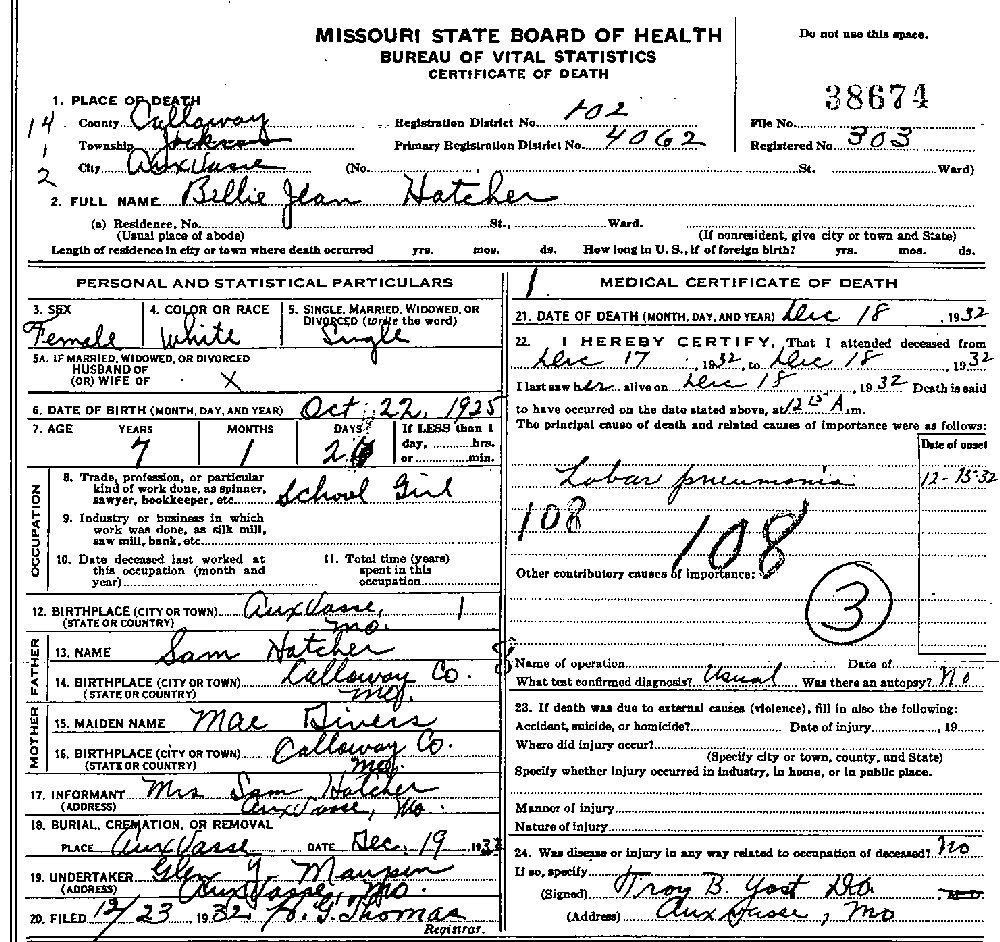 MISSOURI STATE BOARD OF HEALTH
BUREAU OF VITAL STATISTICS
CERTIFICATE OF DEATH
Do not use this space.
38674
1. PLACE OF DEATH
County Callaway Registration District No. 102 File No.
Township Jackson Primary Registration District No. 4062 Registered No. 303
City Auxvasse (No. St. Ward)
14
1
2
2. FULL NAME Billie Jean Hatcher
(a) Residence, No. St., Ward.
(Usual place of abode) (If nonresident, give city or town and State)
Length of residence in city or town where death occurred yrs. mos. ds. How long in U. S., if of foreign birth? yrs. mos. ds.
PERSONAL AND STATISTICAL PARTICULARS
3. SEX 4. COLOR OR RACE 5. SINGLE, MARRIED, WIDOWED, OR DIVORCED (write the word)
Female White Single
5A. IF MARRIED, WIDOWED, OR DIVORCED
HUSBAND OF
(OR) WIFE OF X
6. DATE OF BIRTH (MONTH, DAY, AND YEAR) Oct 22, 1925
7. AGE YEARS MONTHS DAYS If LESS than 1
day, hrs.
or min.
7 1
OCCUPATION
8. Trade, profession, or particular
kind of work done, as spinner,
sawyer, bookkeeper, etc. School Girl
9. Industry or business in which
work was done, as silk mill,
saw mill, bank, etc.
10. Date deceased last worked at
this occupation (month and
year)
11. Total time (years)
spent in this
occupation
12. BIRTHPLACE (CITY OR TOWN) Auxvasse, 1
(STATE OR COUNTRY) Mo.
FATHER
13. NAME Sam Hatcher
14. BIRTHPLACE (CITY OR TOWN) Callaway Co.
(STATE OR COUNTRY) Mo.
MOTHER
15. MAIDEN NAME Mae Divers
16. BIRTHPLACE (CITY OR TOWN) Callaway Co.
(STATE OR COUNTRY) Mo.
17. INFORMANT Mrs Sam Hatcher
(ADDRESS) Auxvasse, Mo.
18. BURIAL, CREMATION, OR REMOVAL
PLACE Auxvasse DATE Dec. 19, 1932
19. UNDERTAKER Glen Y. Maupin
(ADDRESS) Auxvasse, Mo.
20. FILED 12/23 1932 N. G. Thomas
Registrar.
1
MEDICAL CERTIFICATE OF DEATH
21. DATE OF DEATH (MONTH, DAY, AND YEAR) Dec 18, 1932
22. I HEREBY CERTIFY, That I attended deceased from
Dec 17, 1932, to Dec 18, 1932
I last saw her alive on Dec 18, 1932 Death is said
to have occurred on the date stated above, at 12 15 A. m.
The principal cause of death and related causes of importance were as follows:
Date of onset
Lobar pneumonia 12-15-32
108
108
Other contributory causes of importance:
3
Name of operation Date of
What test confirmed diagnosis? Usual Was there an autopsy? No
23. If death was due to external causes (violence), fill in also the following:
Accident, suicide, or homicide? Date of injury, 19
Where did injury occur?
(Specify city or town, county, and State)
Specify whether injury occurred in industry, in home, or in public place.
Manner of injury
Nature of injury
24. Was disease or injury in any way related to occupation of deceased? No
If so, specify
(Signed) Troy B. Yost D.O.
(Address) Auxvasse, Mo